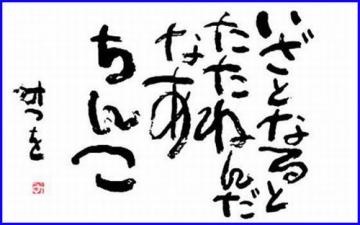 いざとなると
たたねんだ
なあ
ちんこ
みつを